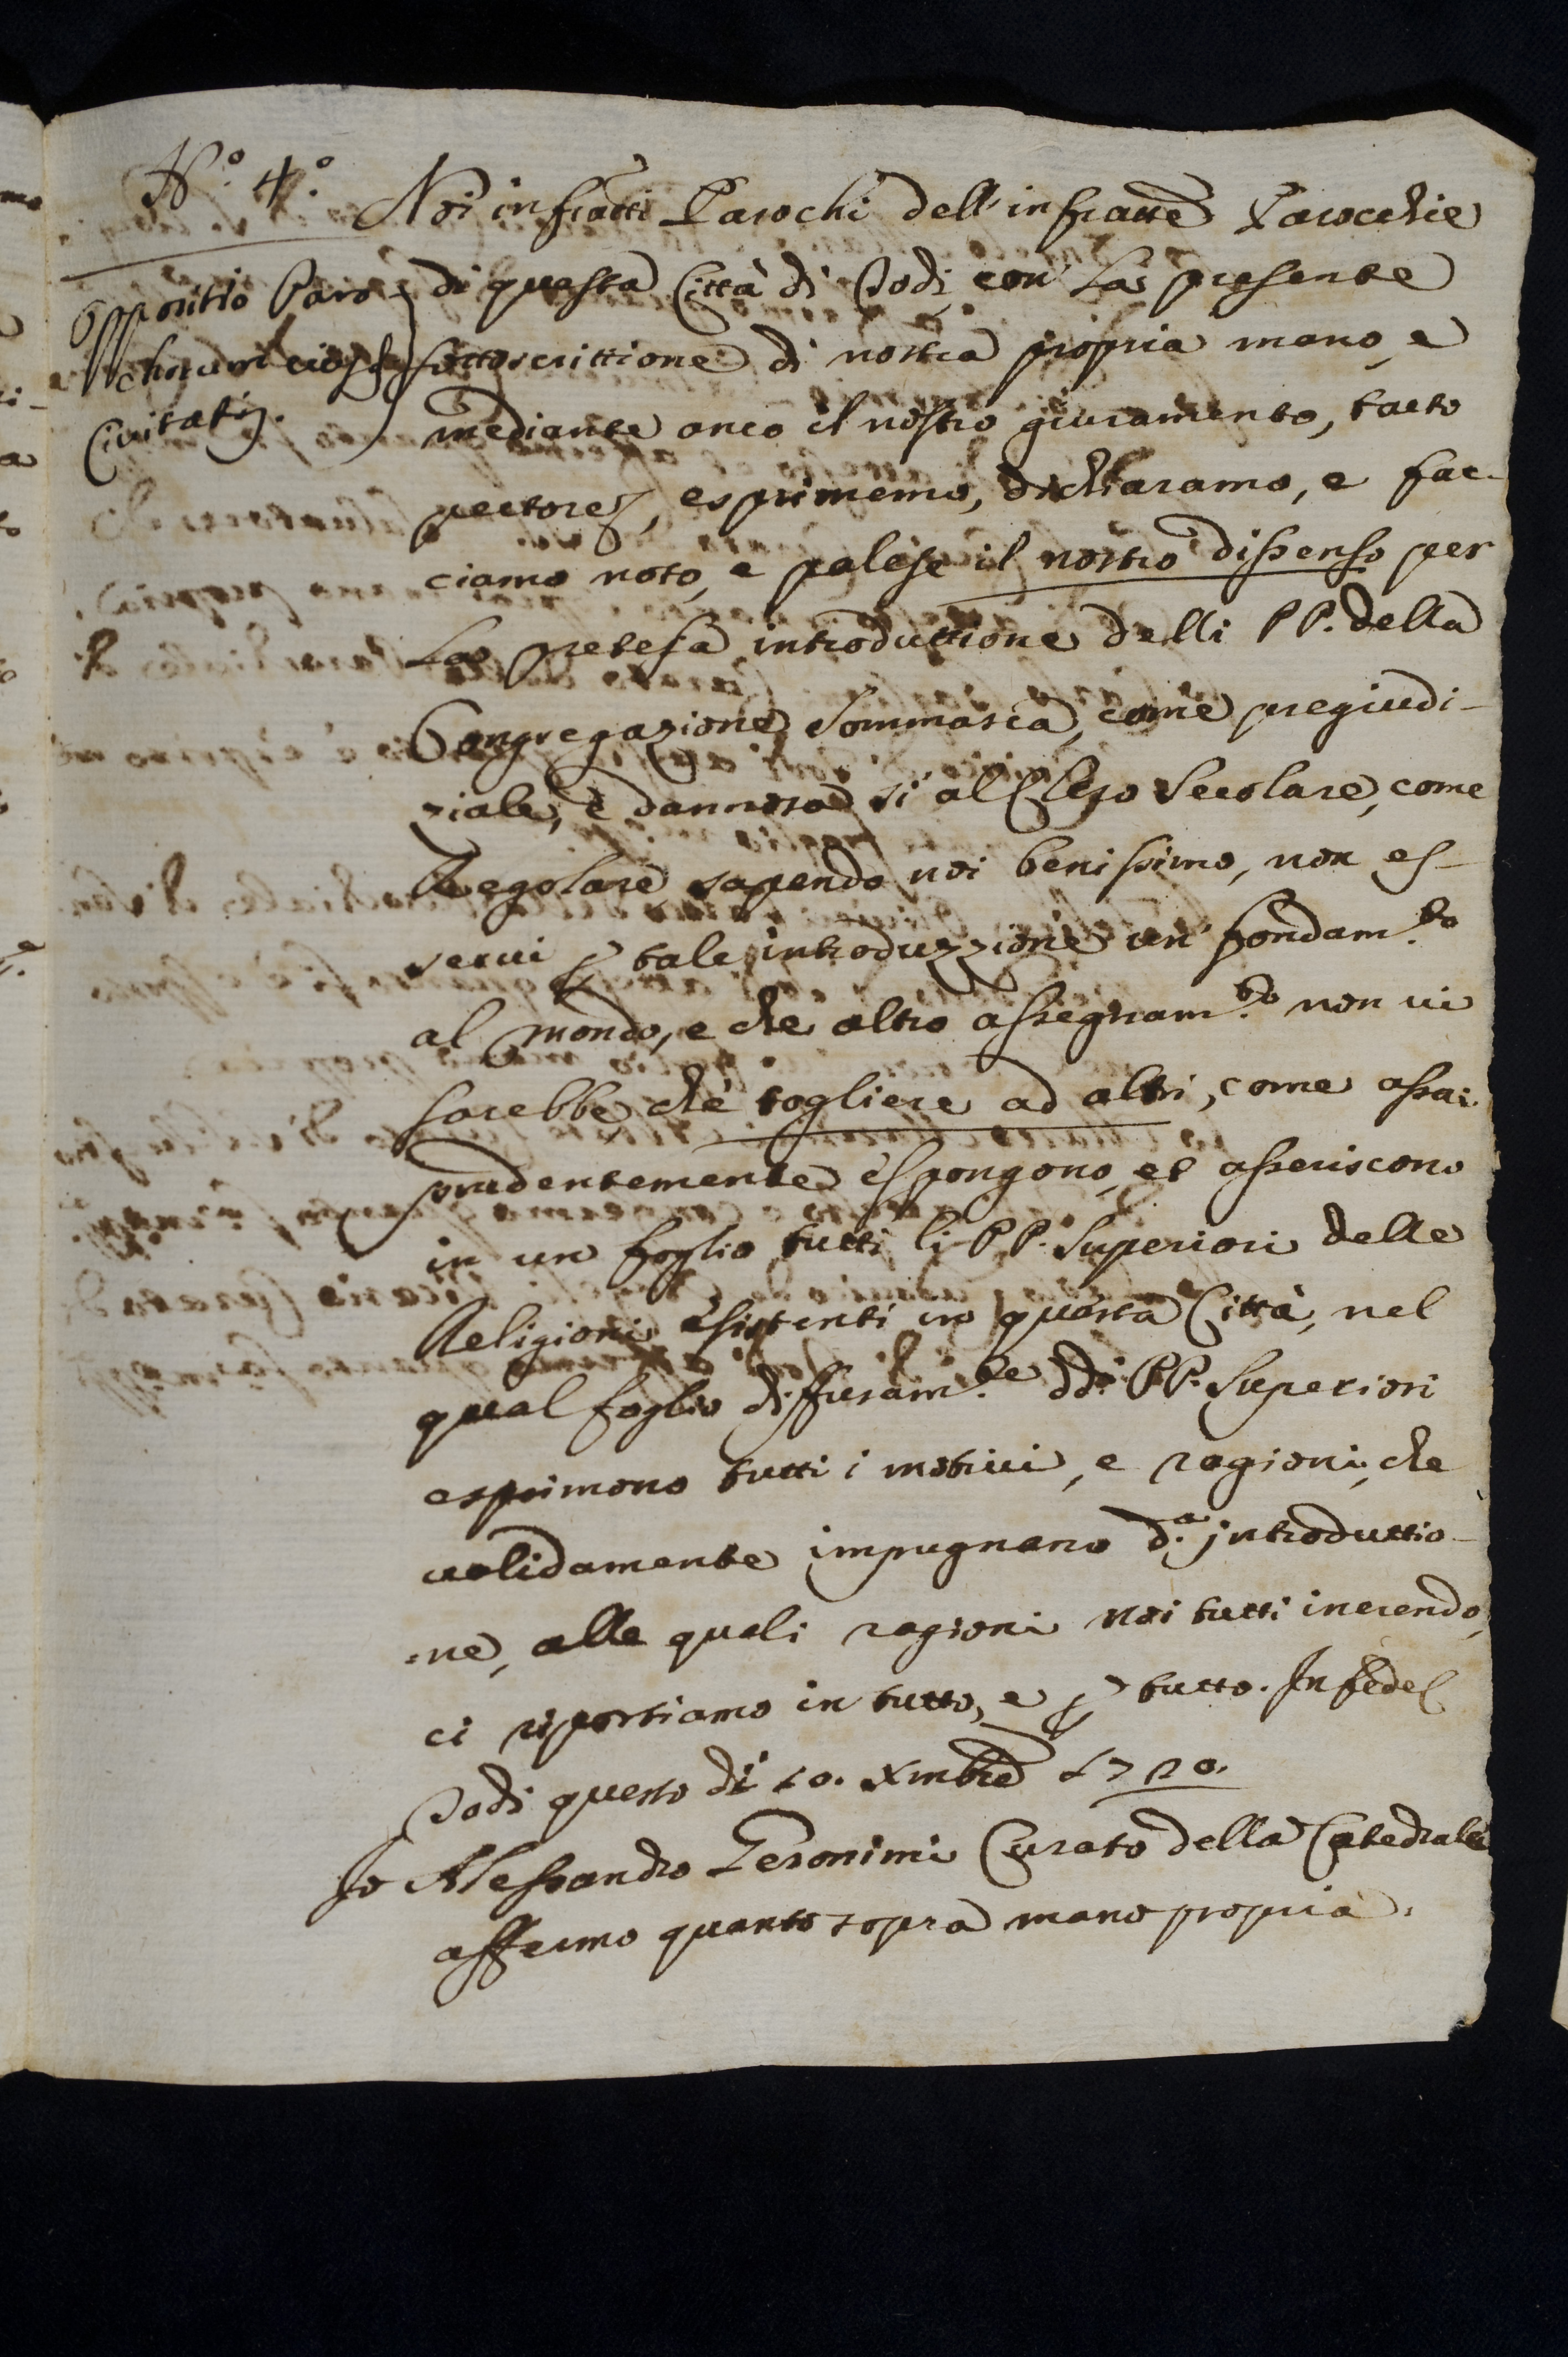 N.º 4.º
Oppositio Paro=
chorum eiusd.
Civitatis.
Noi infratti Parochi dell'infratte Parocchie
di questa Città di Todi con la presente
sottoscrittione di nostra propria mano, e
mediante anco il nostro giuramento, tacto
pectore, esprimemo, dichiaramo, e fac-
ciamo noto, e palese il nostro dissenso per
la pretesa introduttione delli PP. della
Congregazione Sommasca, come pregiudi-
ziale, e dannosa sì al Clero Secolare, come
Regolare, sapendo noi benissimo, non es-
servi p tale introduzzione un fondam.to
al mondo, e che altro assegnam.to non vi
sarebbe, che togliere ad altri, come assai
prudentemente espongono, et asseriscono
in un foglio tutti li PP. Superiori delle
Religioni esistenti in questa Città, nel
qual foglio diffusam.te dd.i PP. Superiori
esprimono tutti i motivi, e ragioni, che
validamente impugnano d.a introduttio-
ne, alle quali ragioni noi tutti inerendo,
ci riportiamo in tutto, e p tutto. In fede
Todi questo dì 10. Xmbre 1720.
Io Alessandro Geronimi Curato della Catedrale
affermo quanto sopra mano propria.